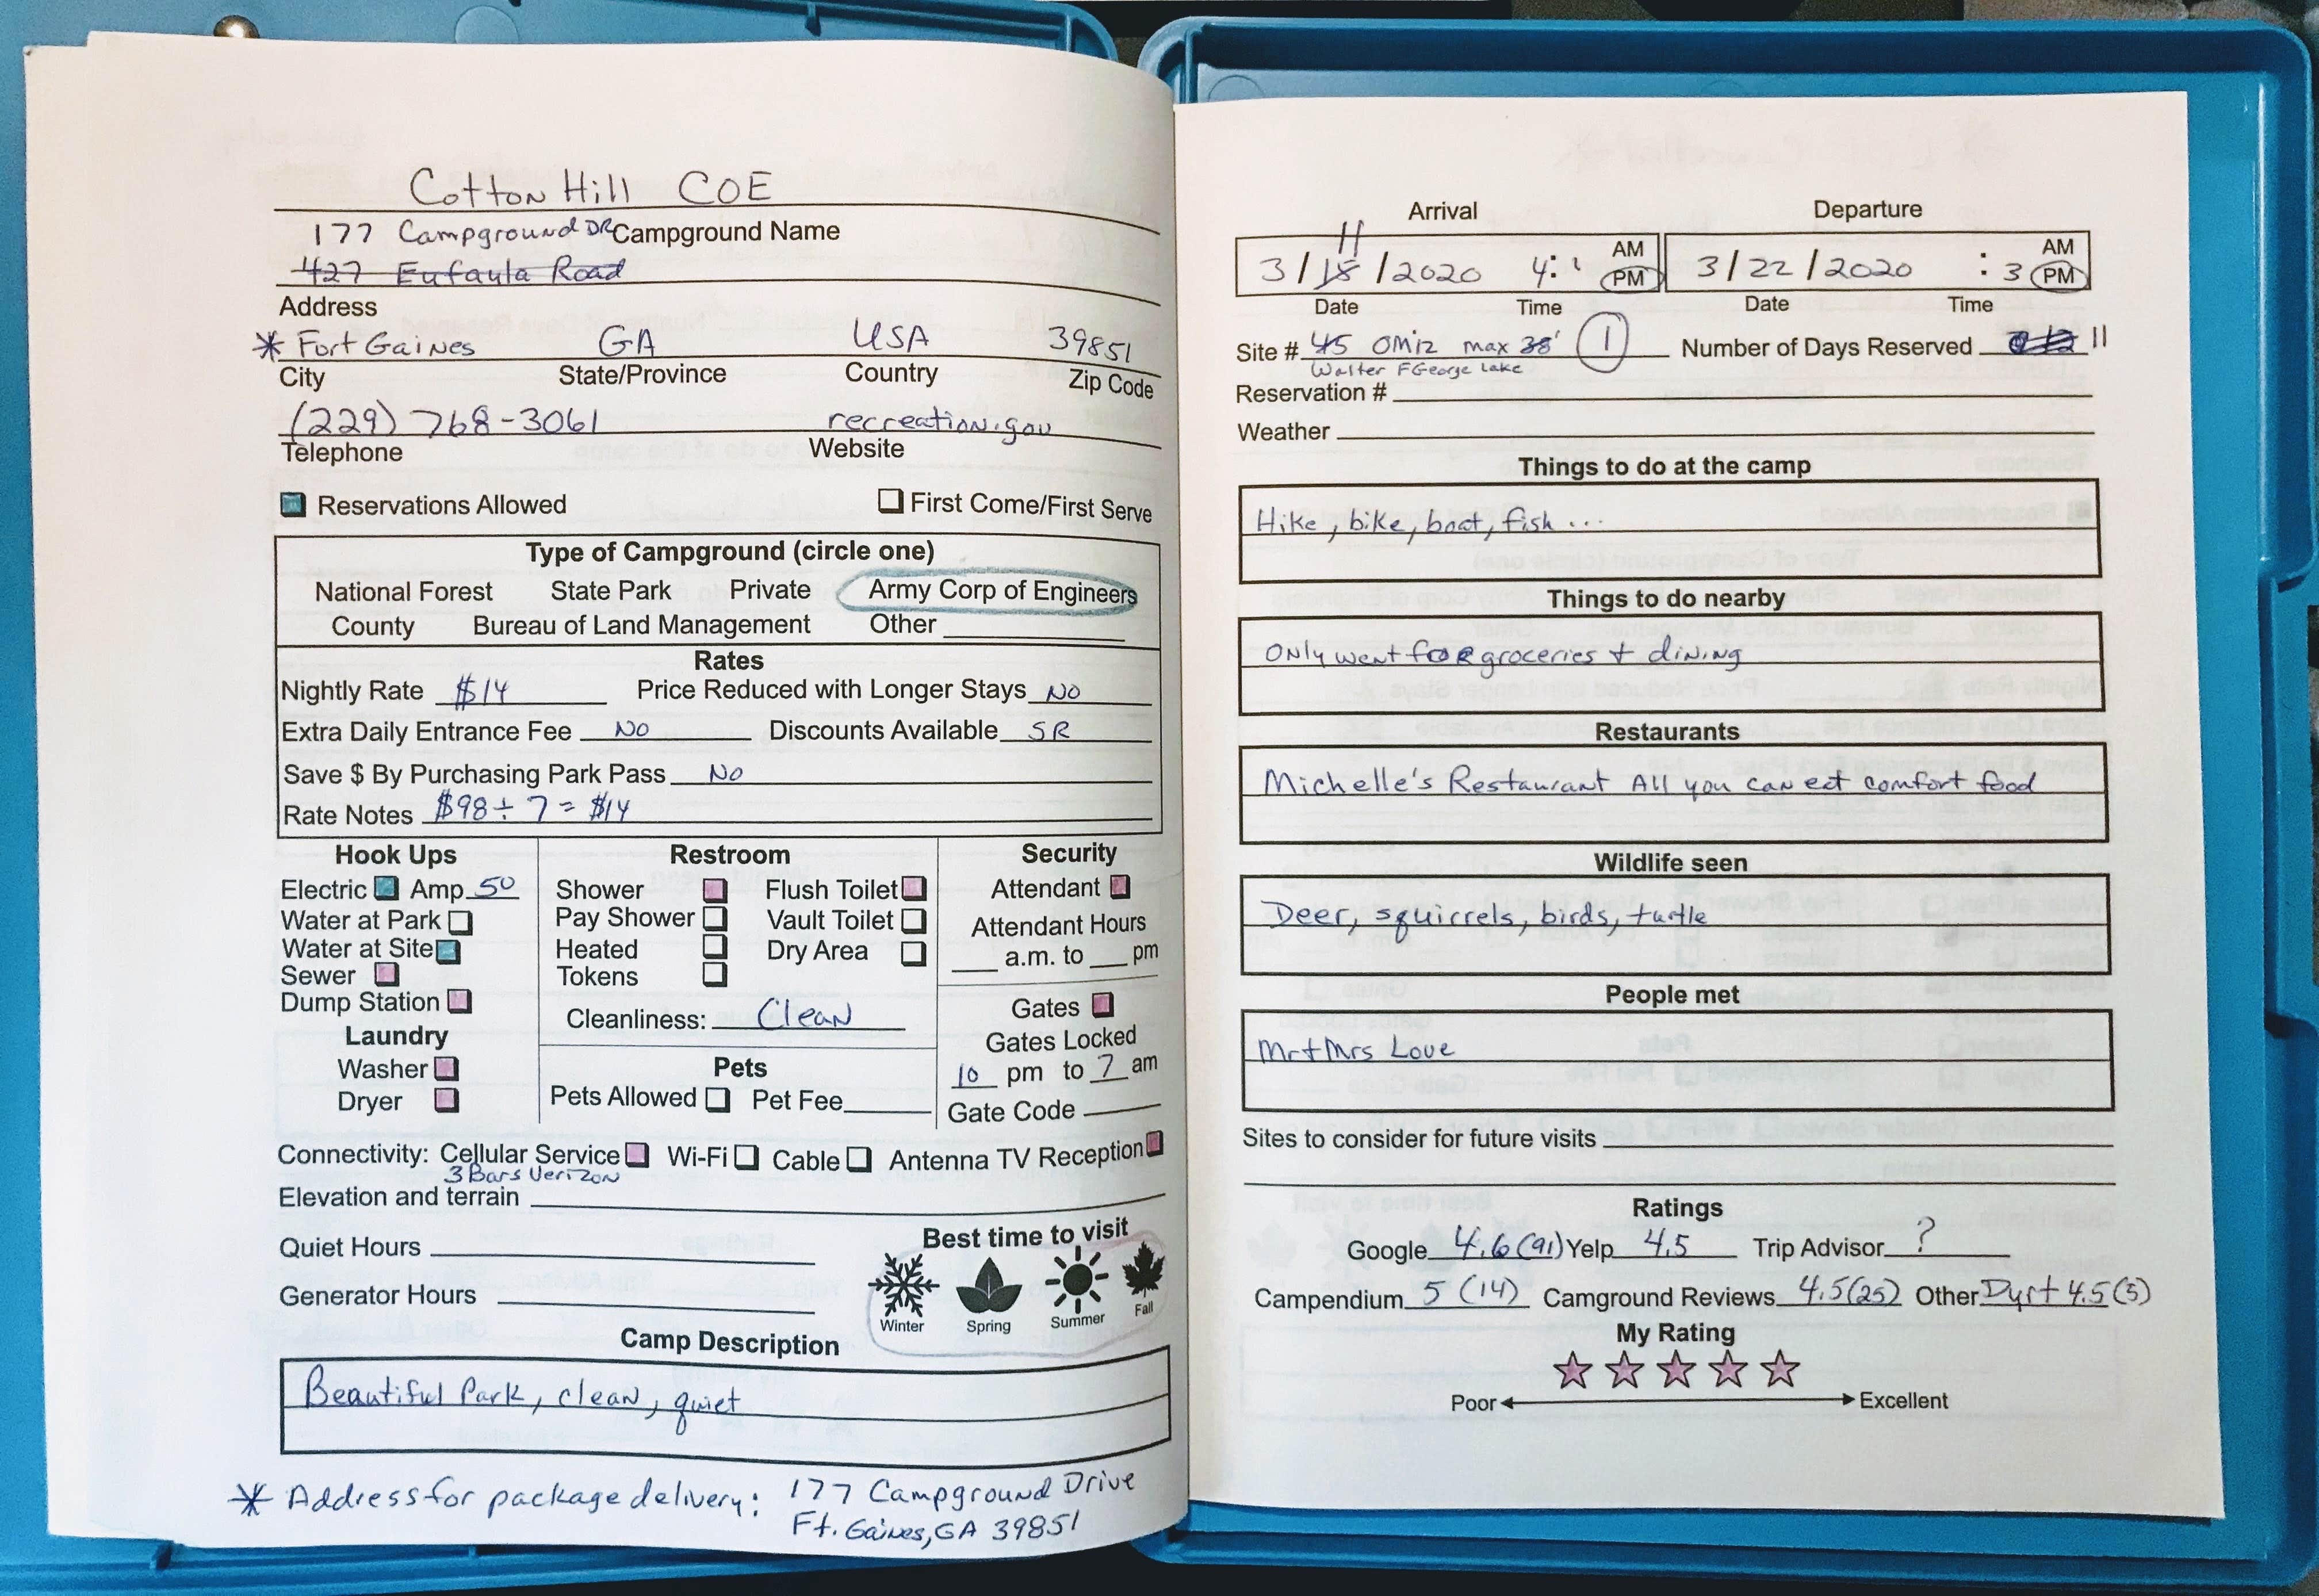 Cotton Hill COE
177 Campground DR Campground Name
427 Eufaula Road
Address
* Fort Gaines GA USA 39851
City State/Province Country Zip Code
(229) 768-3061 recreation.gov
Telephone Website
Reservations Allowed First Come/First Serve
Type of Campground (circle one)
National Forest State Park Private Army Corp of Engineers
County Bureau of Land Management Other
Rates
Nightly Rate $14 Price Reduced with Longer Stays No
Extra Daily Entrance Fee No Discounts Available SR
Save $ By Purchasing Park Pass No
Rate Notes $98 ÷ 7 = $14
Hook Ups
Electric Amp 50
Water at Park
Water at Site
Sewer
Dump Station
Laundry
Washer
Dryer
Restroom
Shower Flush Toilet
Pay Shower Vault Toilet
Heated Dry Area
Tokens
Cleanliness: Clean
Pets
Pets Allowed Pet Fee
Security
Attendant
Attendant Hours
a.m. to pm
Gates
Gates Locked
10 pm to 7 am
Gate Code
Connectivity: Cellular Service Wi-Fi Cable Antenna TV Reception
3 Bars Verizon
Elevation and terrain
Quiet Hours
Generator Hours
Best time to visit
Winter Spring Summer Fall
Camp Description
Beautiful Park, clean, quiet
* Address for package delivery: 177 Campground Drive
Ft. Gaines, GA 39851
Arrival Departure
11
3/15/2020 4: AM PM 3/22/2020 : 3 AM PM
Date Time Date Time
Site # 45 OMiz max 38' 1 Number of Days Reserved 11
Walter F George Lake
Reservation #
Weather
Things to do at the camp
Hike, bike, boat, fish ...
Things to do nearby
Only went for groceries + dining
Restaurants
Michelle's Restaurant All you can eat comfort food
Wildlife seen
Deer, squirrels, birds, turtle
People met
Mr + Mrs Love
Sites to consider for future visits
Ratings
Google 4.6 (91) Yelp 4.5 Trip Advisor ?
Campendium 5 (14) Camground Reviews 4.5 (25) Other Dyrt 4.5 (5)
My Rating
Poor Excellent